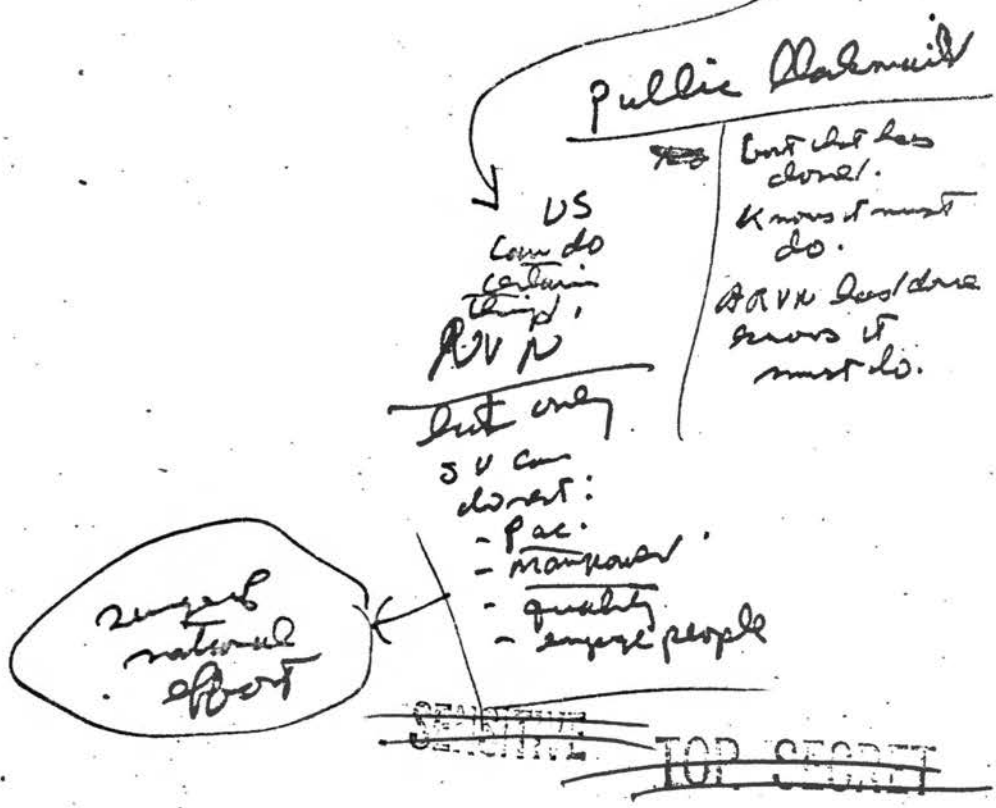 Public Blackmail
Govt that has
done.
Knows it must
do.
ARVN has/done
knows it
must do.
US
can do
certain
things.
RVN
but only
SV can
do rest:
- Pac.
- manpower.
- quality
- engage people
national
effort
SENSITIVE
TOP SECRET